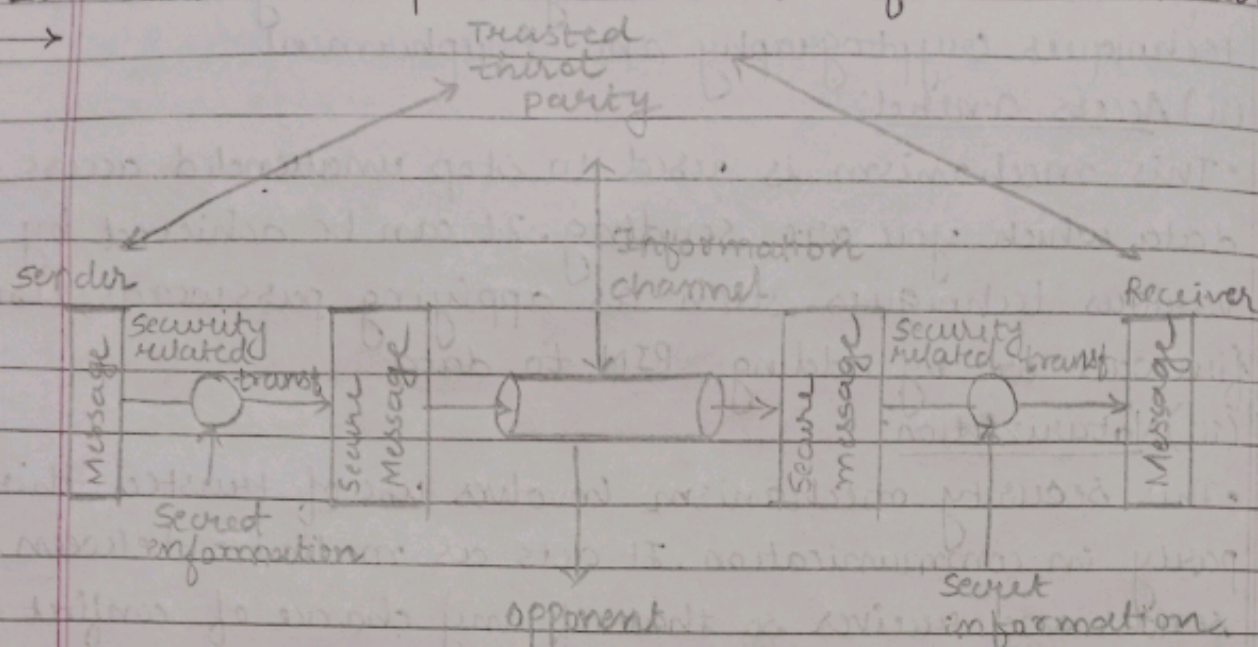 Trusted
third
party
Information
channel
Sender
Receiver
Message
Security
related
transf
Secure
Message
Secure
message
Security
related transf
Message
Secret
information
opponent
Secret
information